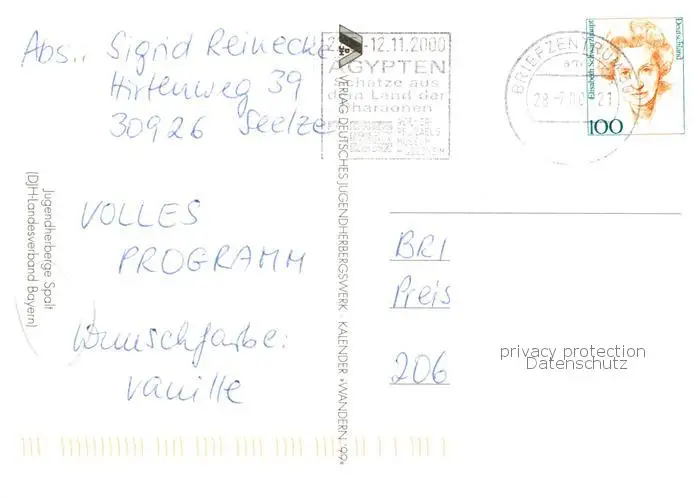 Abs.: Sigrid Reinecke
Hirtenweg 39
30926 Seelze
VOLLES
PROGRAMM
Wunschfarbe:
vanille
Jugendherberge Spalt
(DJH-Landesverband Bayern)
VERLAG DEUTSCHES JUGENDHERBERGSWERK · KALENDER »WANDERN '99«
-12.11.2000
ÄGYPTEN
Schätze aus
dem Land der
Pharaonen
BRIEFZENTRUM
21
Elisabeth Schwarzhaupt
Deutschland
100
BRI
Preis
206
privacy protection
Datenschutz